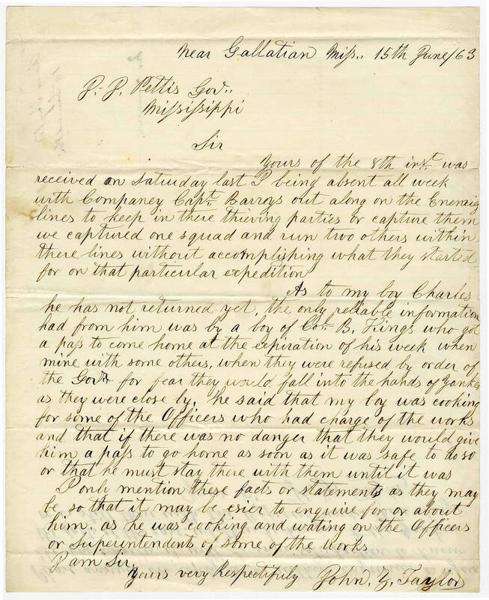 Near Gallatian Miss.. 15th June/63
J. J. Pettis Gov..
Mississippi
Sir
Yours of the 8th inst. was
received on Saturday last I being absent all week
with Companey Capt. Barrys out along on the Enemies
lines to keep in there thieving parties or capture them
we captured one squad and run two others within
there lines without accomplishing what they started
for on that particular expedition
As to my boy Charles
he has not returned yet, the only reliable information
had from him was by a boy of Col. B. Kings who got
a pass to come home at the expiration of his week when
mine with some others, when they were refused by order of
the Govt for fear they would fall into the hands of Yankees
as they were close by, he said that my boy was cooking
for some of the Officers who had charge of the works
and that if there was no danger that they would give
him a pass to go home as soon as it was safe to do so
or that he must stay there with them until it was
I only mention these facts or statements as they may
be so that it may be esier to enquire for or about
him. as he was cooking and wating on the Officers
or Superintendents of some of the works
I am Sir
Yours very Respectifuly John. Y. Taylor